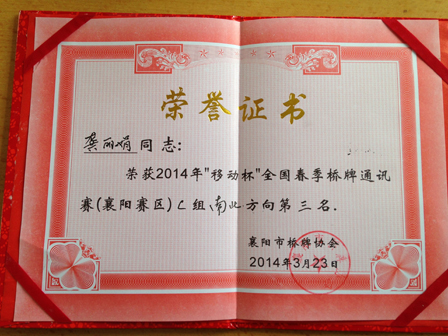 荣誉证书
龚丽娟同志:
荣获2014年"移动杯"全国春季桥牌通讯
赛(襄阳赛区)乙组南北方向第三名.
襄阳市桥牌协会
2014年3月23日